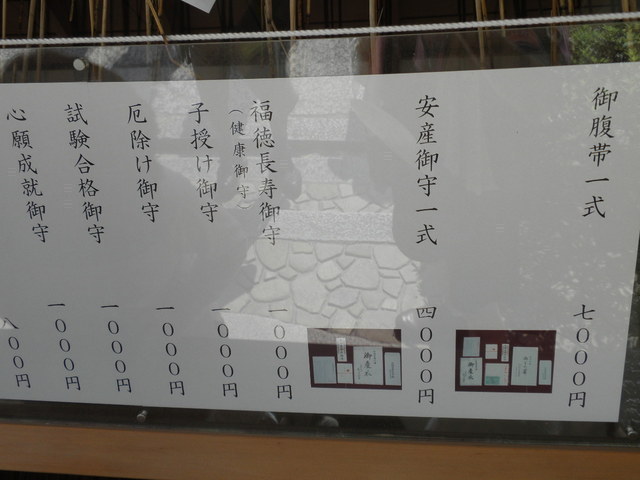 御腹帯一式
七〇〇〇円
安産御守一式
四〇〇〇円
福徳長寿御守
一〇〇〇円
（健康御守）
一〇〇〇円
子授け御守
一〇〇〇円
厄除け御守
一〇〇〇円
試験合格御守
一〇〇〇円
心願成就御守
八〇〇円